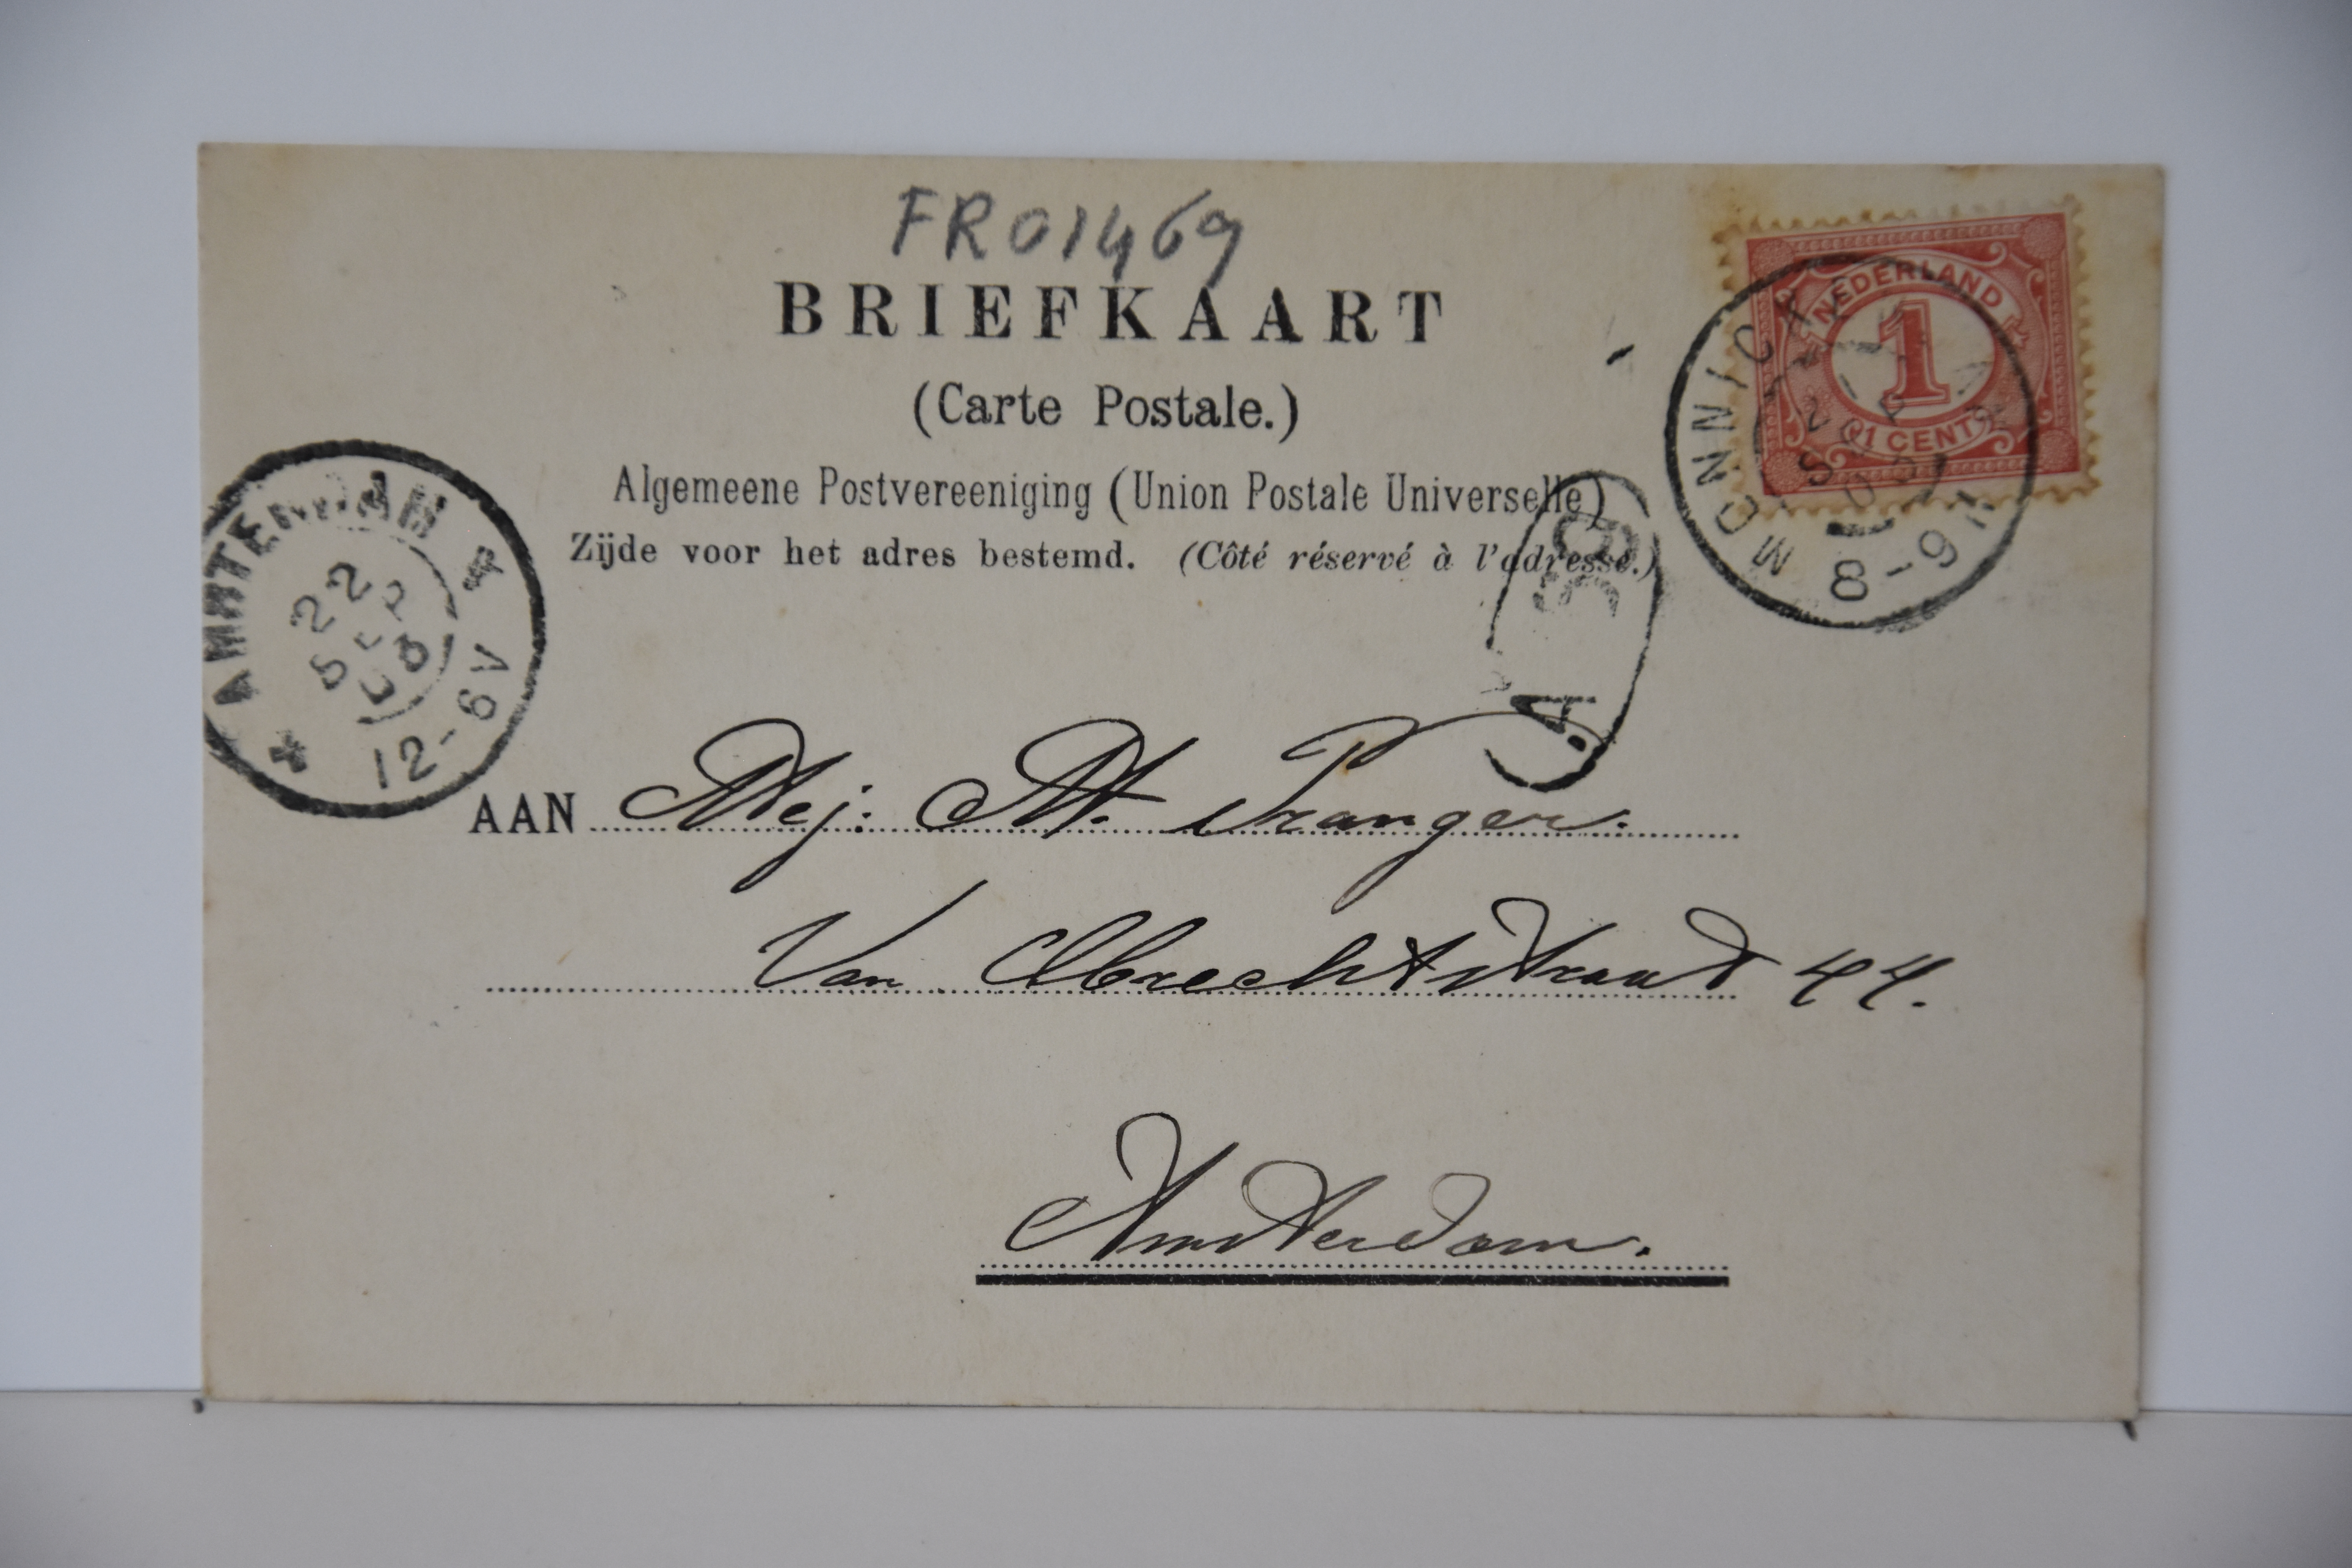 FR01469
BRIEFKAART
(Carte Postale.)
Algemeene Postvereeniging (Union Postale Universelle)
Zijde voor het adres bestemd. (Côté réservé à l'adresse.)
NEDERLAND
1
1 CENT
MONNICK
8-9
22
SEP
12-6V
AAN Mej: M. Pranger.
Van Obrechtstraat 44.
Amsterdam.